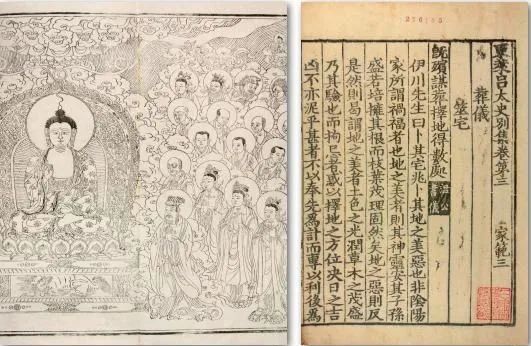 東萊呂太史別集卷第三　家範三
葬儀
筮宅
既殯謀葬擇地得數處
伊川先生曰卜其宅兆卜其地之美惡也非陰陽
家所謂禍福者也地之美者則其神靈安其子孫
盛若培擁其根而枝葉茂理固然矣地之惡則反
是然則曷謂地之美者土色之光潤草木之茂盛
乃其驗也而拘忌者惑以擇地之方位決日之吉
凶不亦泥乎甚者不以奉先為計而專以利後為